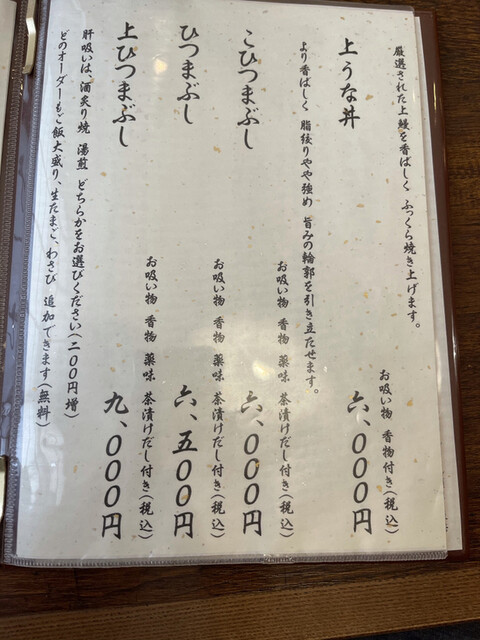 厳選された上鰻を香ばしく ふっくら焼き上げます。
上うな丼
お吸い物 香物付き(税込)
六、000円
より香ばしく 脂絞りやや強め 旨みの輪郭を引き立たせます。
こひつまぶし
お吸い物 香物 薬味 茶漬けだし付き(税込)
六、000円
ひつまぶし
お吸い物 香物 薬味 茶漬けだし付き(税込)
六、五00円
上ひつまぶし
お吸い物 香物 薬味 茶漬けだし付き(税込)
九、000円
肝吸いは、酒炙り焼 湯煎 どちらかをお選びください(二00円増)
どのオーダーもご飯大盛り、生たまご、わさび 追加できます(無料)